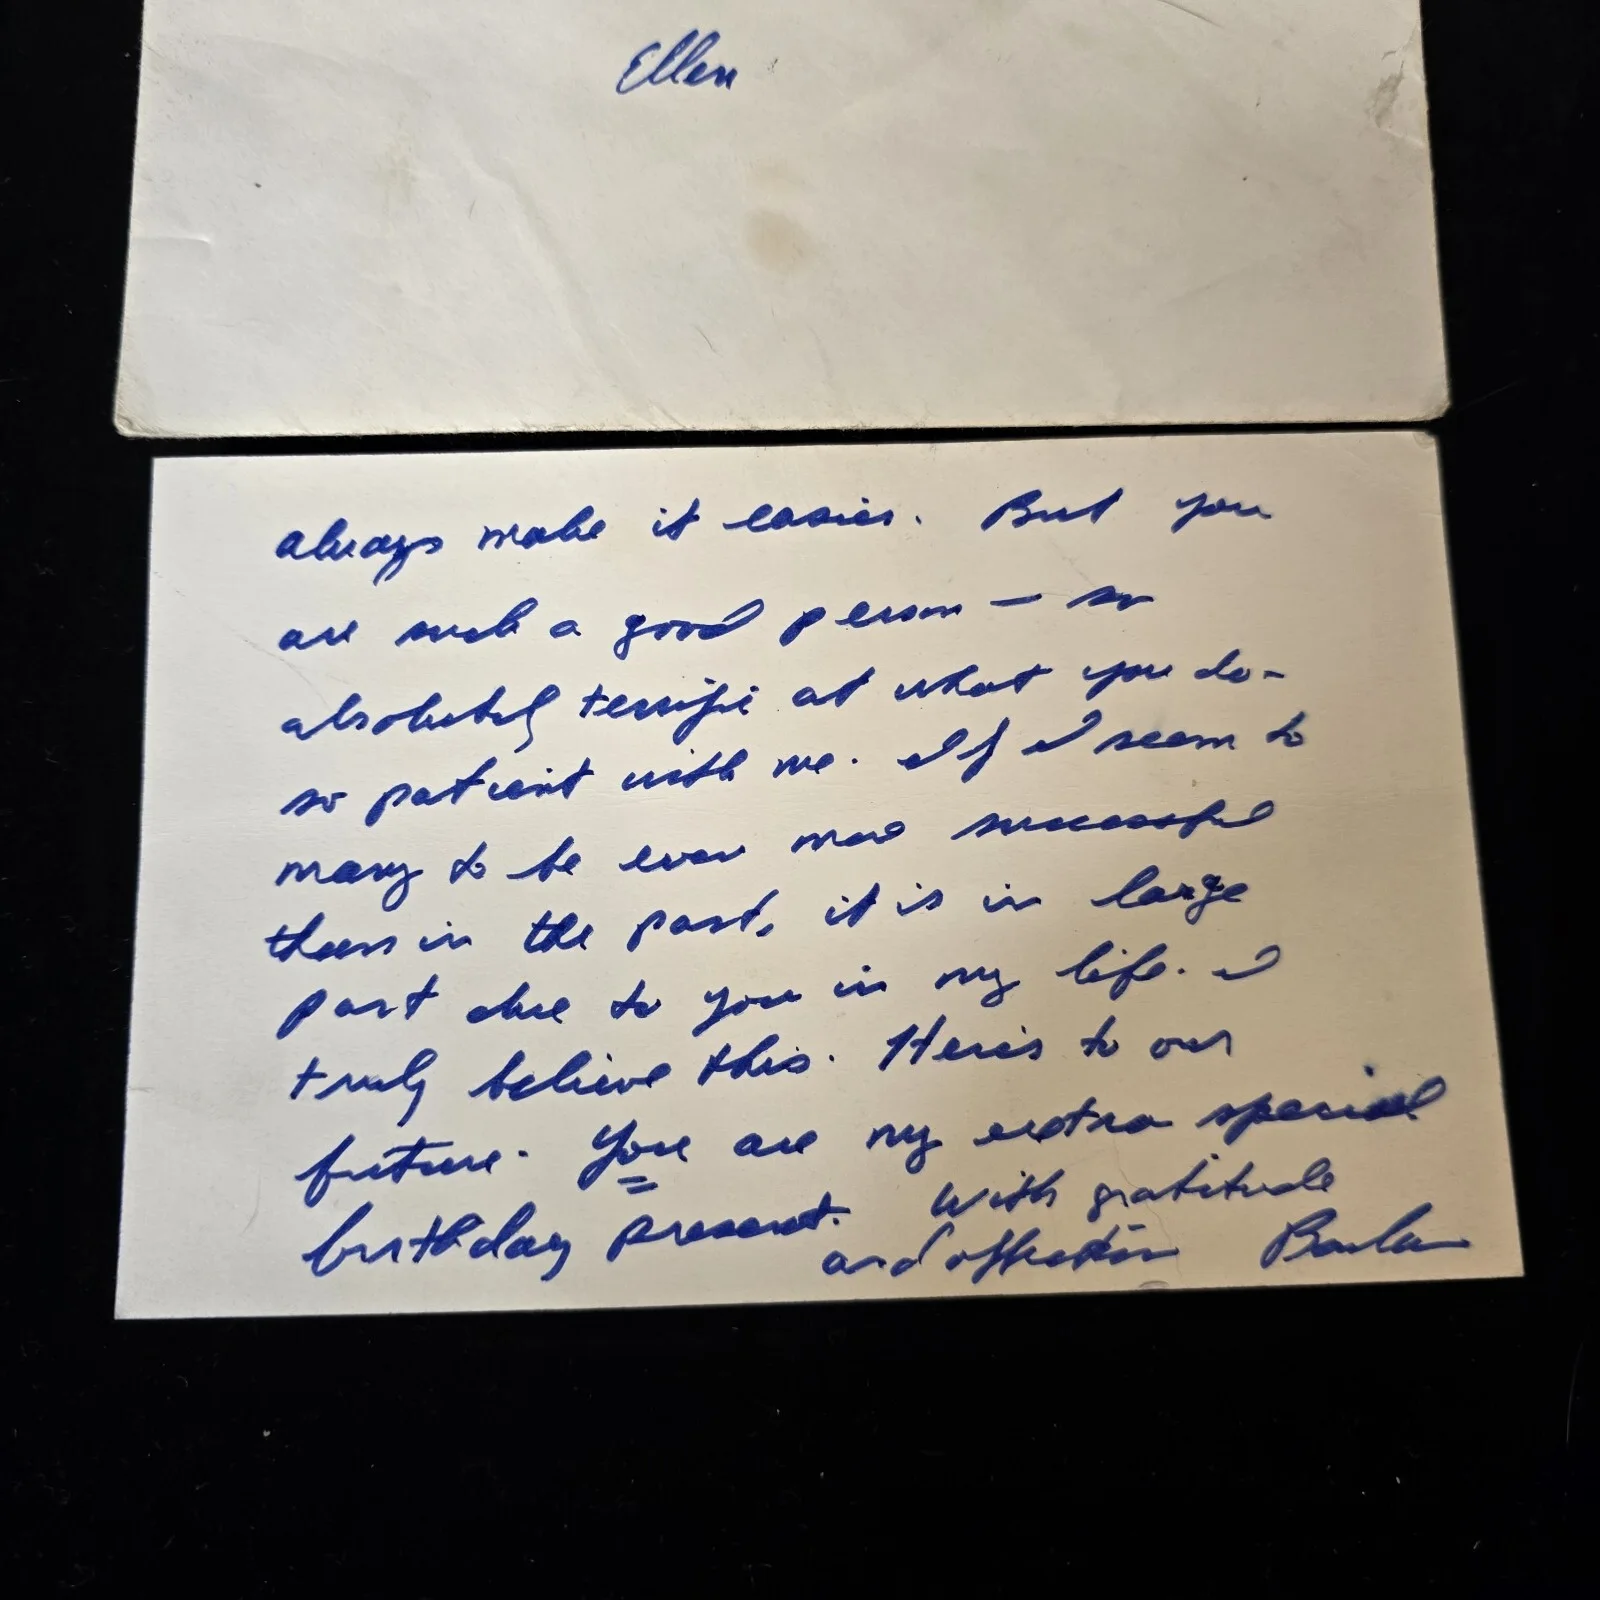 Ellen
always make it easier. But you
are such a good person — so
absolutely terrific at what you do -
so patient with me. If I seem to
many to be even more successful
than in the past, it is in large
part due to you in my life. I
truly believe this. Here's to our
future. You are my extra special
birthday present. With gratitude
and affection